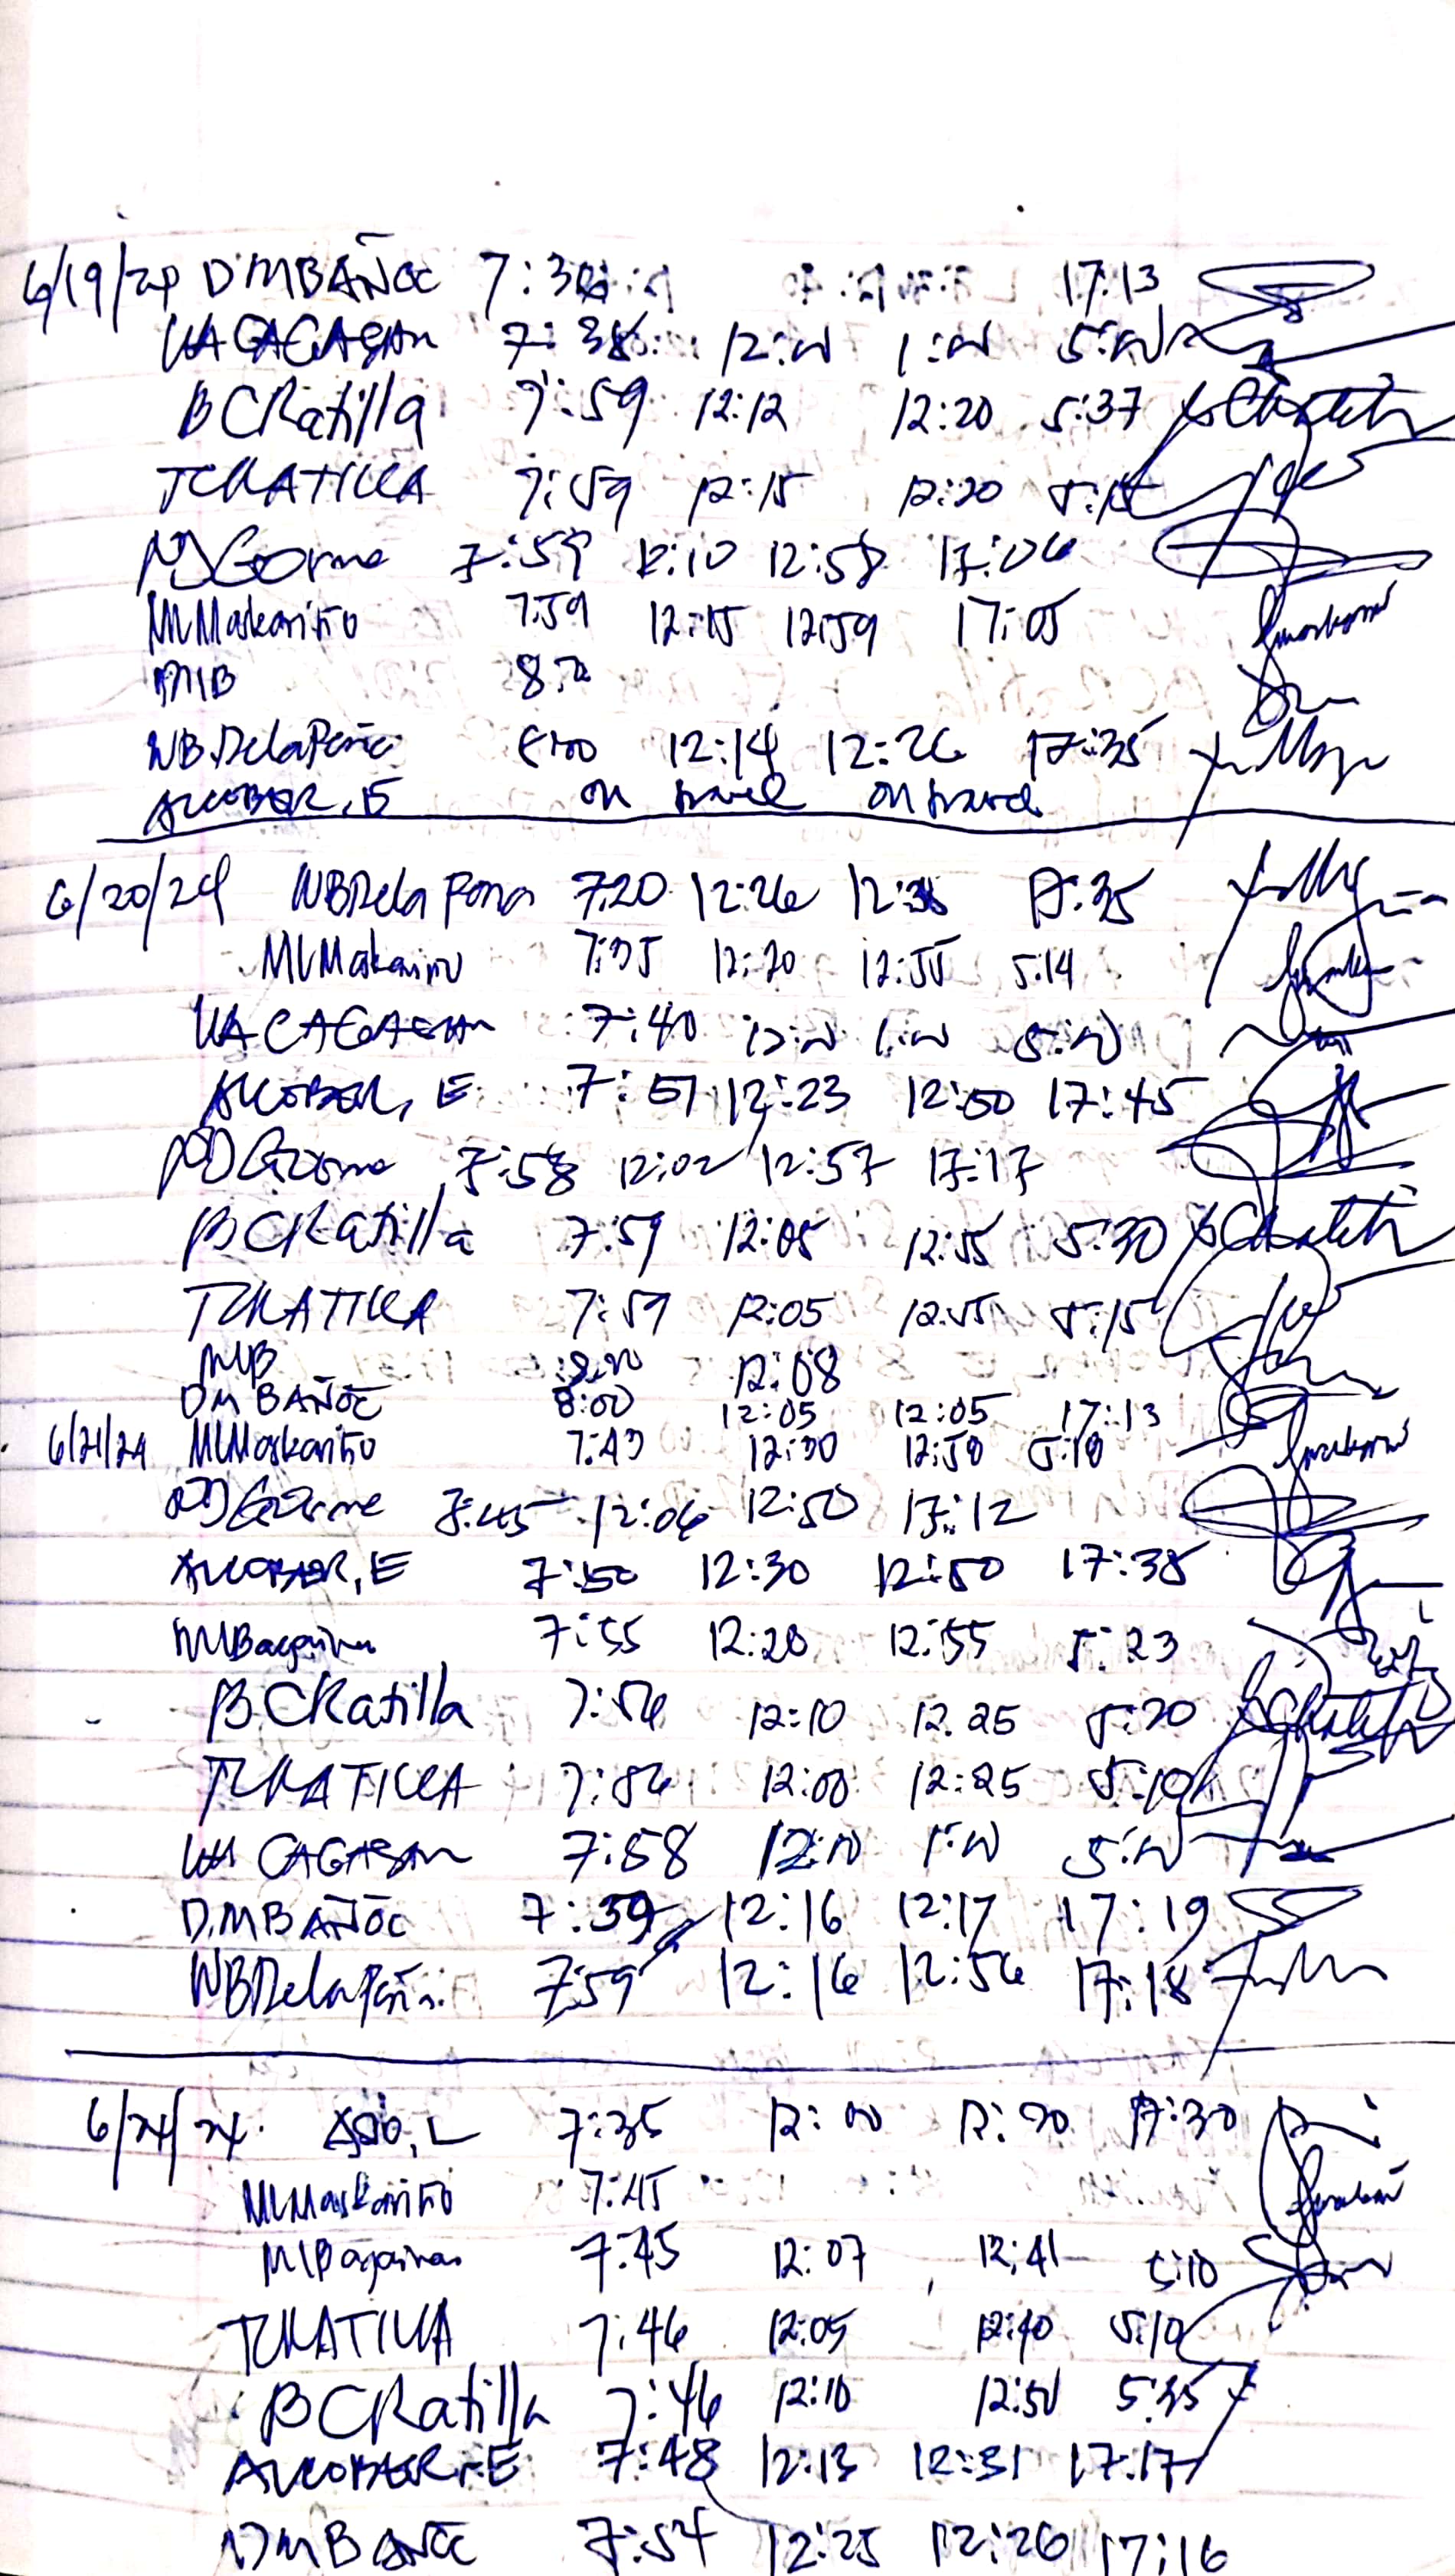 6/19/24 DMBAÑOC 7:30 17:13
CAGASAN 7:38 12:00 1:00 5:00
BCRatilla 7:59 12:12 12:20 5:37
TCRATILLA 7:59 12:15 12:20 5:15
7:59 12:10 12:58 17:06
MLMaskariño 7:59 12:15 12:59 17:05
MIB 8:00
NBDelaPeña 8:00 12:14 12:26 17:35
ALCOBER, E on travel on travel
6/20/24 NBDela Pena 7:20 12:26 17:35
MLMaskariño 7:35 12:20 12:55 5:14
CAGASAN 7:40 12:00 1:00 5:00
ALCOBER, E 7:51 12:23 12:50 17:45
7:58 12:02 12:57 17:17
BCRatilla 7:59 12:05 12:55 5:30
TCRATILLA 7:59 12:05 12:55 5:15
MIB 8:00 12:08
DMBAÑOC 8:00 12:05 12:05 17:13
6/21/24 MLMaskariño 7:43 12:30 12:50 5:10
7:45 12:06 12:50 17:12
ALCOBER, E 7:50 12:30 12:50 17:38
MIBagarinao 7:55 12:20 12:55 5:23
BCRatilla 7:56 12:10 12:25 5:20
TCRATILLA 7:56 12:00 12:25 5:10
CAGASAN 7:58 12:00 1:00 5:00
D.MBAÑOC 7:59 12:16 12:17 17:19
NBDelaPeña 7:59 12:16 12:56 17:18
6/24/24 ASIO, L 7:35 12:00 12:30 17:30
MLMaskariño 7:45
MIBagarinao 7:45 12:07 12:41 5:10
TCRATILLA 7:46 12:05 12:40 5:10
BCRatilla 7:46 12:10 12:50 5:35
ALCOBER, E 7:48 12:13 12:31 17:17
DMBAÑOC 7:54 12:25 12:26 17:16